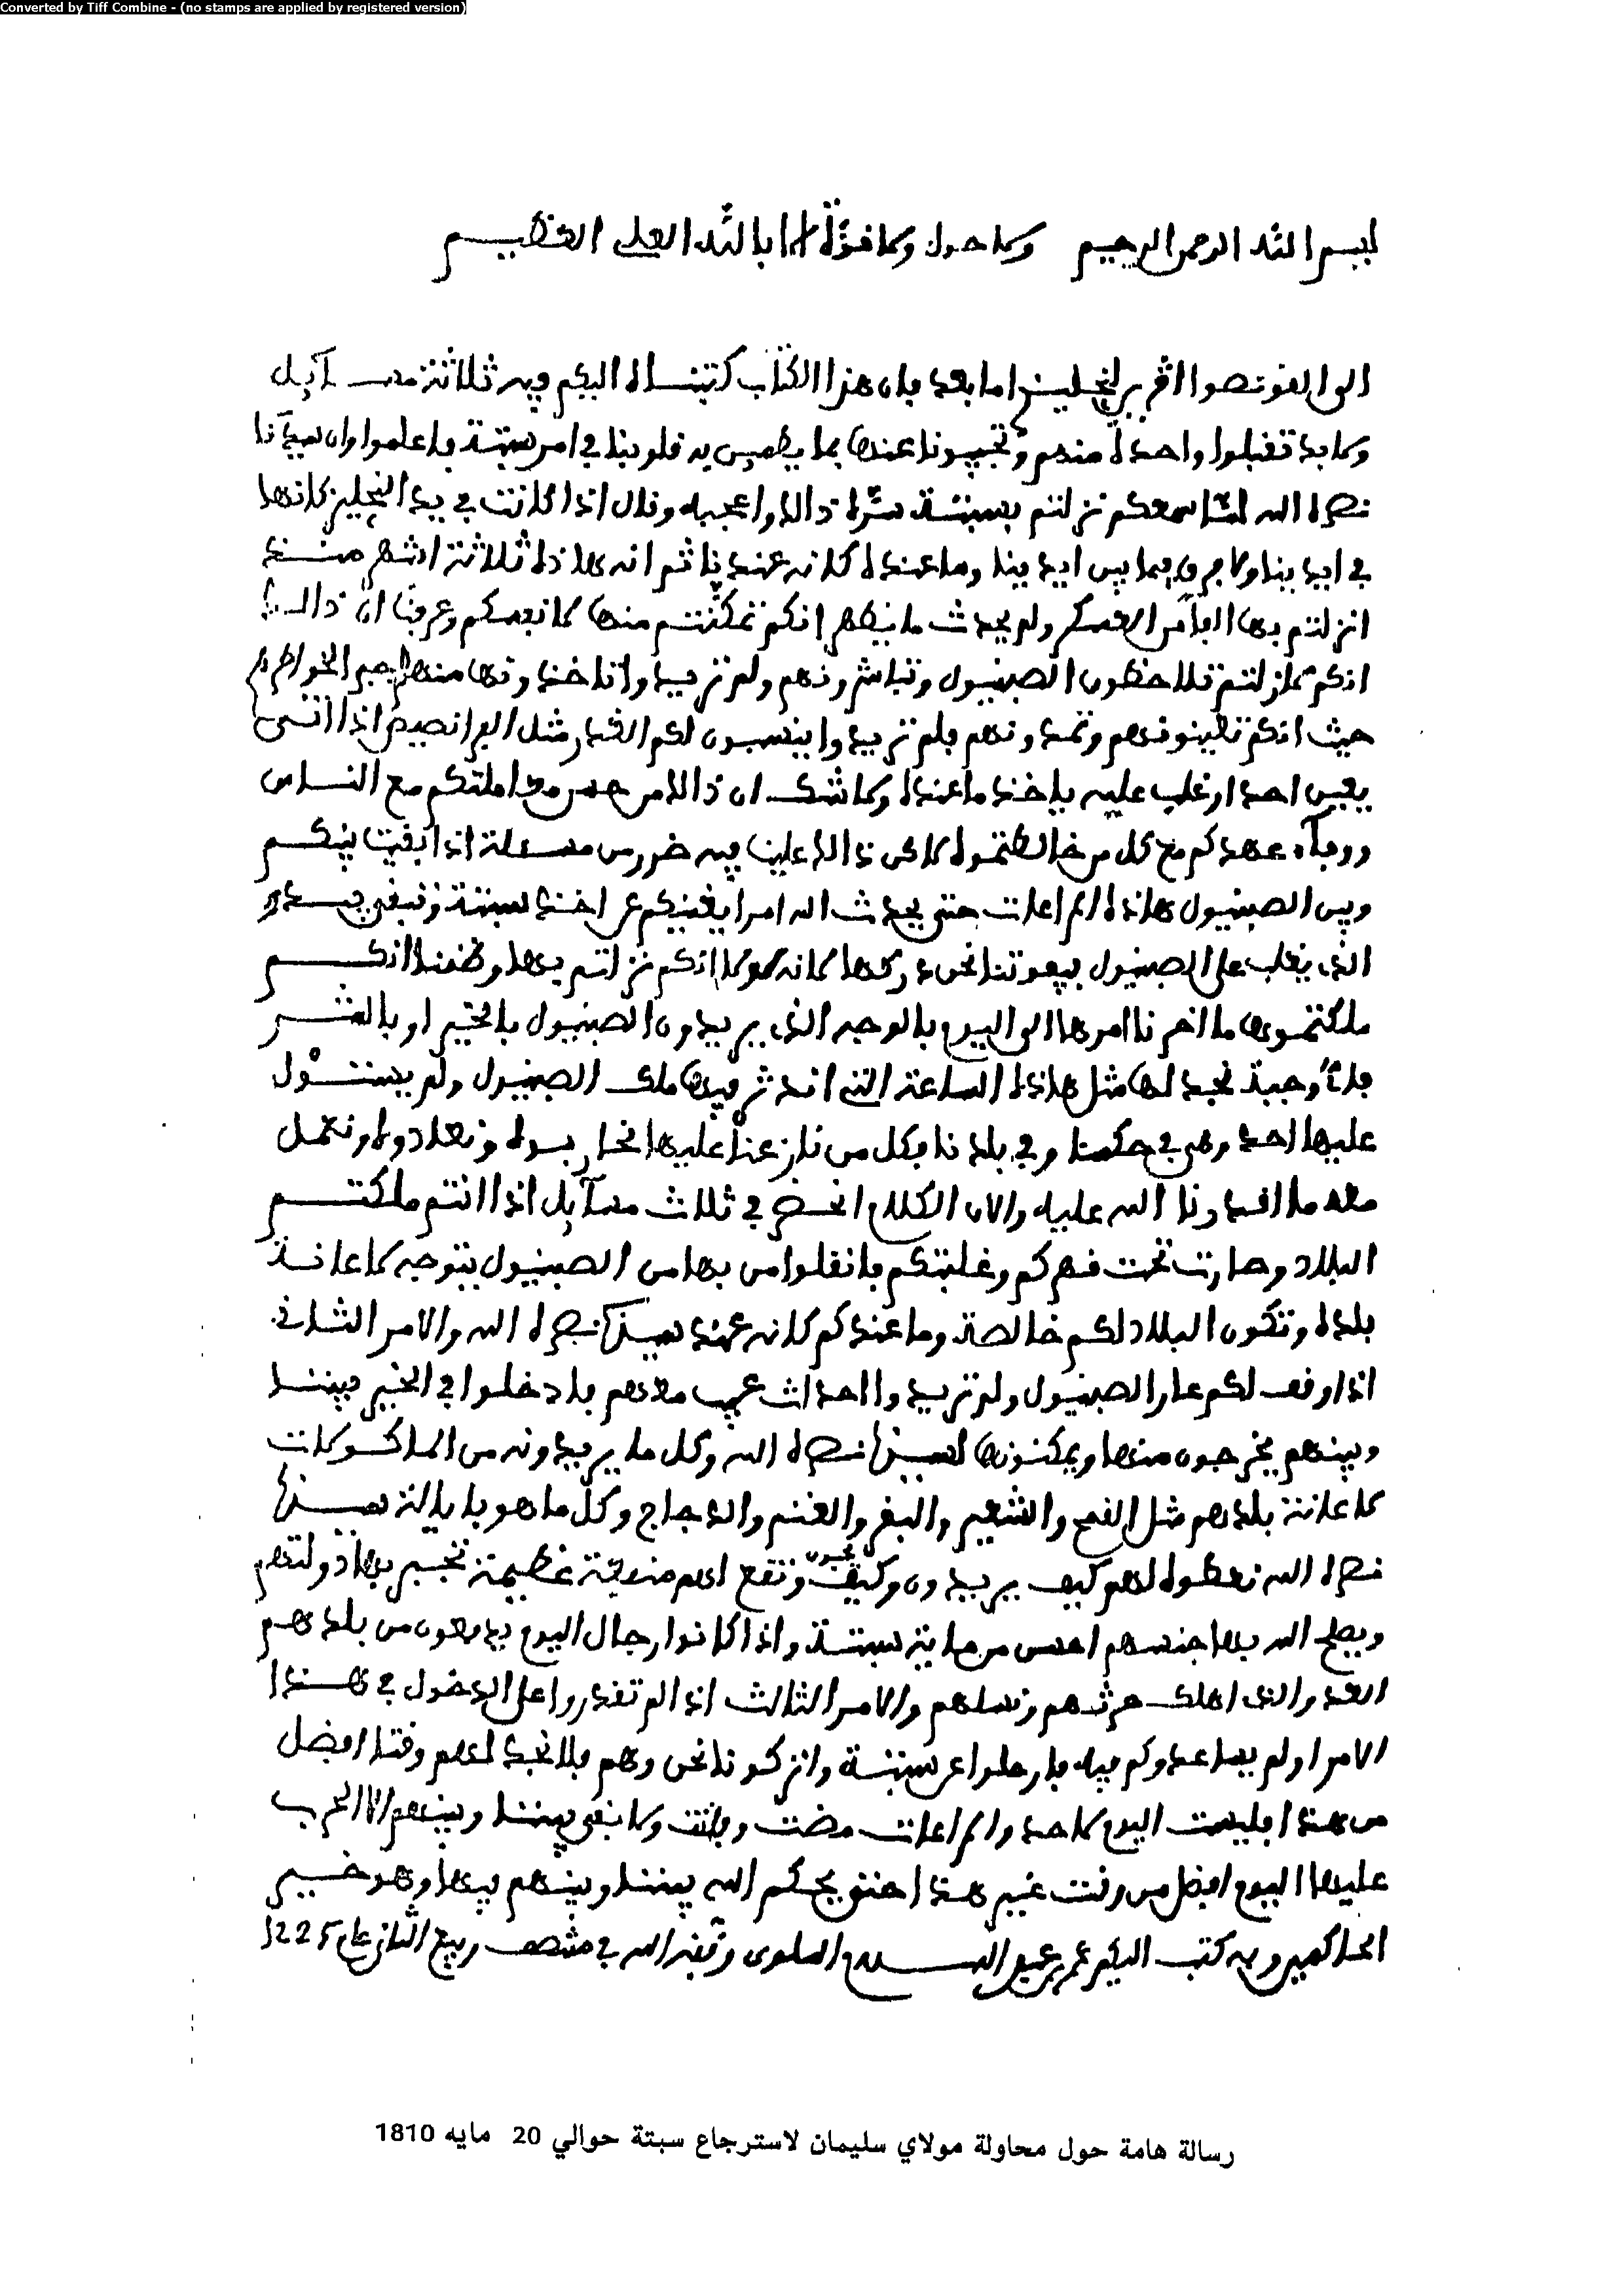 Converted by Tiff Combine - (no stamps are applied by registered version)
بسم الله الرحمن الرحيم ولا حول ولا قوة الا بالله العلي العظيم
الى القونصوا لنجليز اما بعد فان هذا الكتاب كتبناه اليكم فيه ثلاثة مسآيل
ولابد تقبلوا واحدة منهم وتجيبونا عنها بما يطمين به قلوبنا في امر سبتة فاعلموا وان سيدنا
نصره الله لما سمعكم نزلتم بسبتة سره ذالك واعجبه وقال اذا كانت في يد النجليز كانها
في ايدينا ولا فرق فيما بين ايدينا وما عنده كانه عندنا ثم انه هاذه ثلاثة اشهر منذ
انزلتم بها العسكر ولم يحدث ما يظهر انكم تمكنتم منها لانفسكم وعرفنا ان ذالك
انكم مازلتم تلاحظون الصبنيول وتباشرونهم ولم تريدوا تاخذونها منهم لجبر الخواطرهم
حيث انكم تعينونهم وتمدونهم فلم تريدوا ينسبون لكم الغدر مثل الفرانصيص اذا اتى
يعين احدا وغلب عليه ياخذ ما عنده ولا شك ان ذالك من حسن معاملتكم مع الناس
ووفآء عهدكم مع كل من خالطتموه لاكن ذالك علينا فيه ضرر من مسئلة اذا بقيت بينكم
وبين الصبنيول هاذه المراعات حتى يحدث الله امرا يغنيكم عن اخذ سبتة وتبقى بيد
الذي يغلب على الصبنيول يفوتنا نحن دركها لانه لولا انكم نزلتم بها وظننا انكم
ملكتموها ما اخرنا امرها الى اليوم بالوجه الذي يريدون الصبنيول بالخير او بالشر
نجد لها مثل هاذه الساعة التي اندثر فيها ملك الصبنيول ولم يستول
عليها احد وهي في حكمنا وفي بلدنا فكل من نازعنا عليها نحاربوه ونعادوه ونعمل
معه ما اقدرنا الله عليه والان الكلام انحصر في ثلاث مسآيل اذا انتم ملكتم
البلاد وصارت تحت قهركم وغلبتكم فانقلوا من بها من الصبنيول يتوجه لاعانة
بلده وتكون البلاد لكم خالصة وما عندكم كانه عند سيدنا نصره الله والامر الثاني
اذا وقف لكم عار الصبنيول ولم تريدوا احداث عيب معهم فادخلوا في الخير بيننا
وبينهم يخرجون منها ويمكنونها لسيدنا نصره الله وكل ما يريدونه من الماكولات
لاعانة بلدهم مثل القمح والشعير والبقر والغنم والدجاج وكل ما هو بايالة سيدنا
نصره الله نعطوه لهم كيف يريدون وكيف يحبون وتقع لهم منفعة عظيمة تجبر بها دولتهم
ويصلح الله بها جنسهم احسن من ماية سبتة واذا كانوا رجال اليوم يدفعون من بلدهم
العدو الذي اهلك حرثهم ونسلهم والامر الثالث اذا لم تقدروا على الدخول في هذا
الامر ولم يساعدوكم فيه فارحلوا عن سبتة واتركونا نحن وهم فلا نجد لهم وقتا افضل
من هذا فليست اليوم لاحد والمراعات مضت وفاتت ولا بقي بيننا وبينهم الا الحرب
عليها اليوم افضل من وقت غير هذا حتى يحكم الله بيننا وبينهم فيها وهو خير
الحاكمين وبه كتب اليكم عمر بن عبد السلام السلوي وفقه الله في منتصف ربيع الثاني عام 1225
رسالة هامة حول محاولة مولاي سليمان لاسترجاع سبتة حوالي 20 مايه 1810